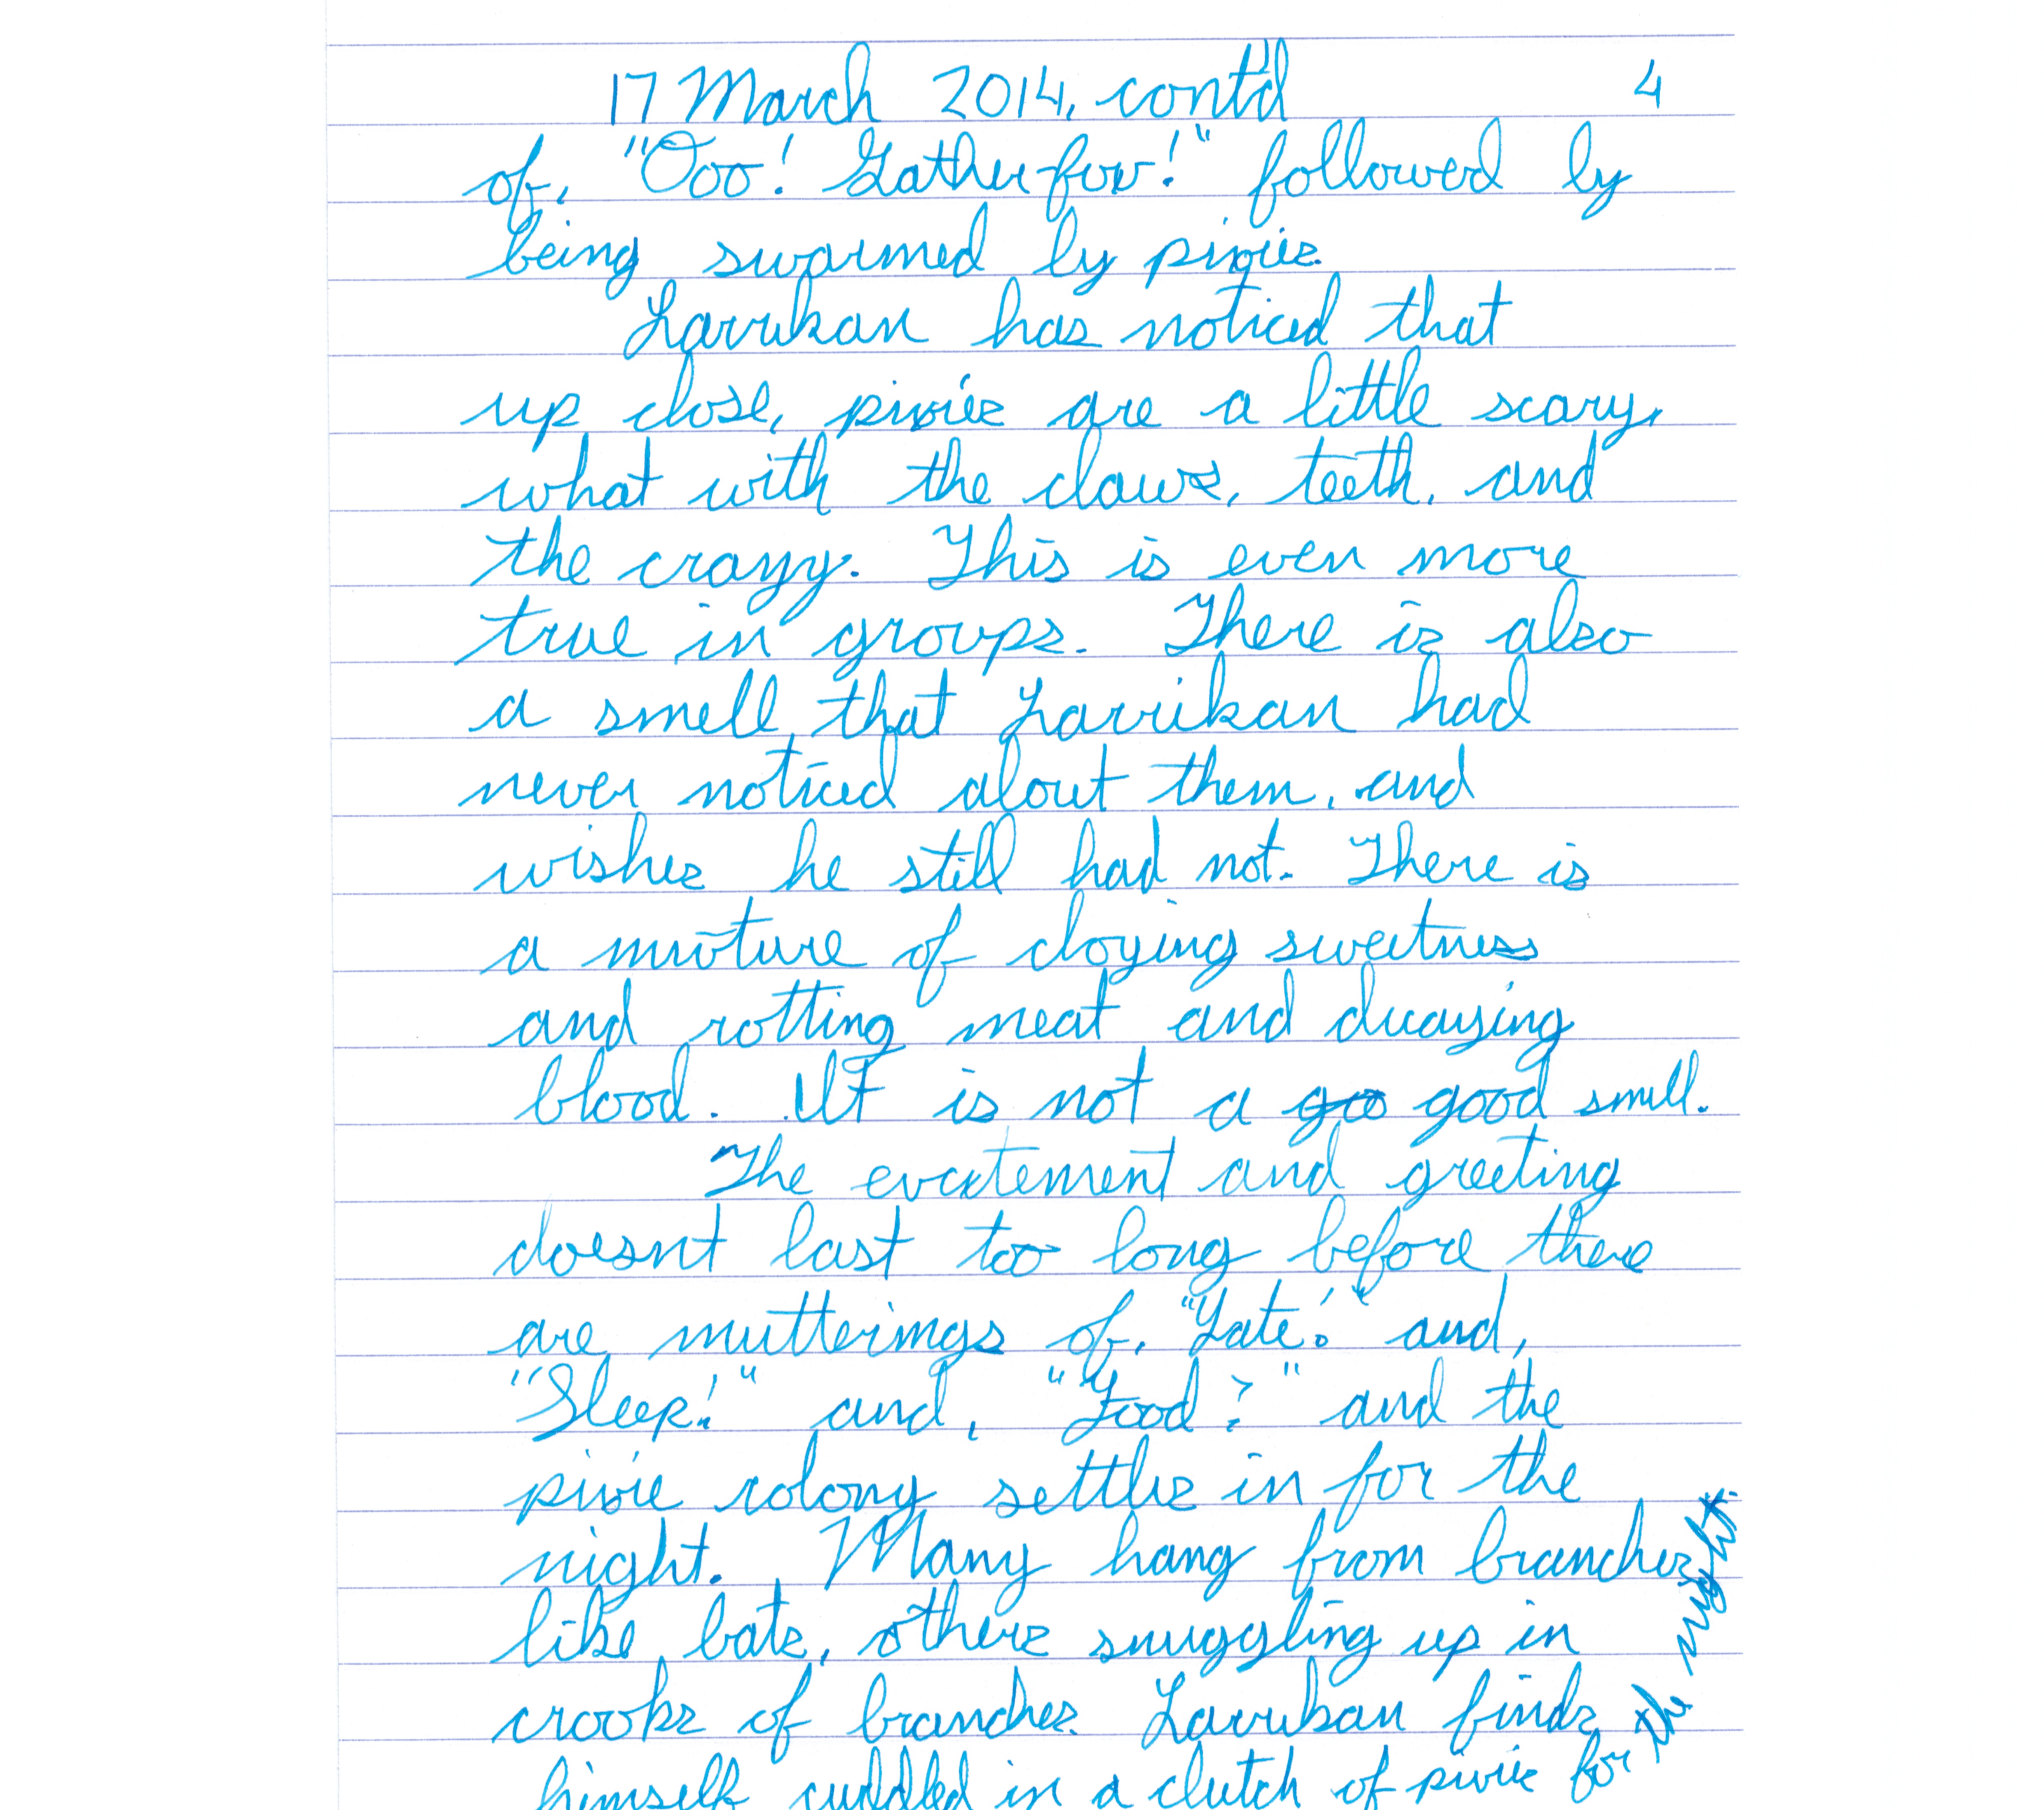 17 March 2014, cont'd 4
of, "Ooo! Gather-for!" followed by
being swarmed by pixies.
Larrikan has noticed that
up close, pixies are a little scary,
what with the claws, teeth, and
the crazy. This is even more
true in groups. There is also
a smell that Larrikan had
never noticed about them, and
wishes he still had not. There is
a mixture of cloying sweetness
and rotting meat and decaying
blood. It is not a goo good smell.
The excitement and greeting
doesn't last too long before there
are mutterings of, "Late!" and,
"Sleep!" and, "Food?" and the
pixie colony settles in for the
night. Many hang from branches
like bats, others snuggling up in
crooks of branches. Larrikan finds
himself cuddled in a clutch of pixies for
the night.